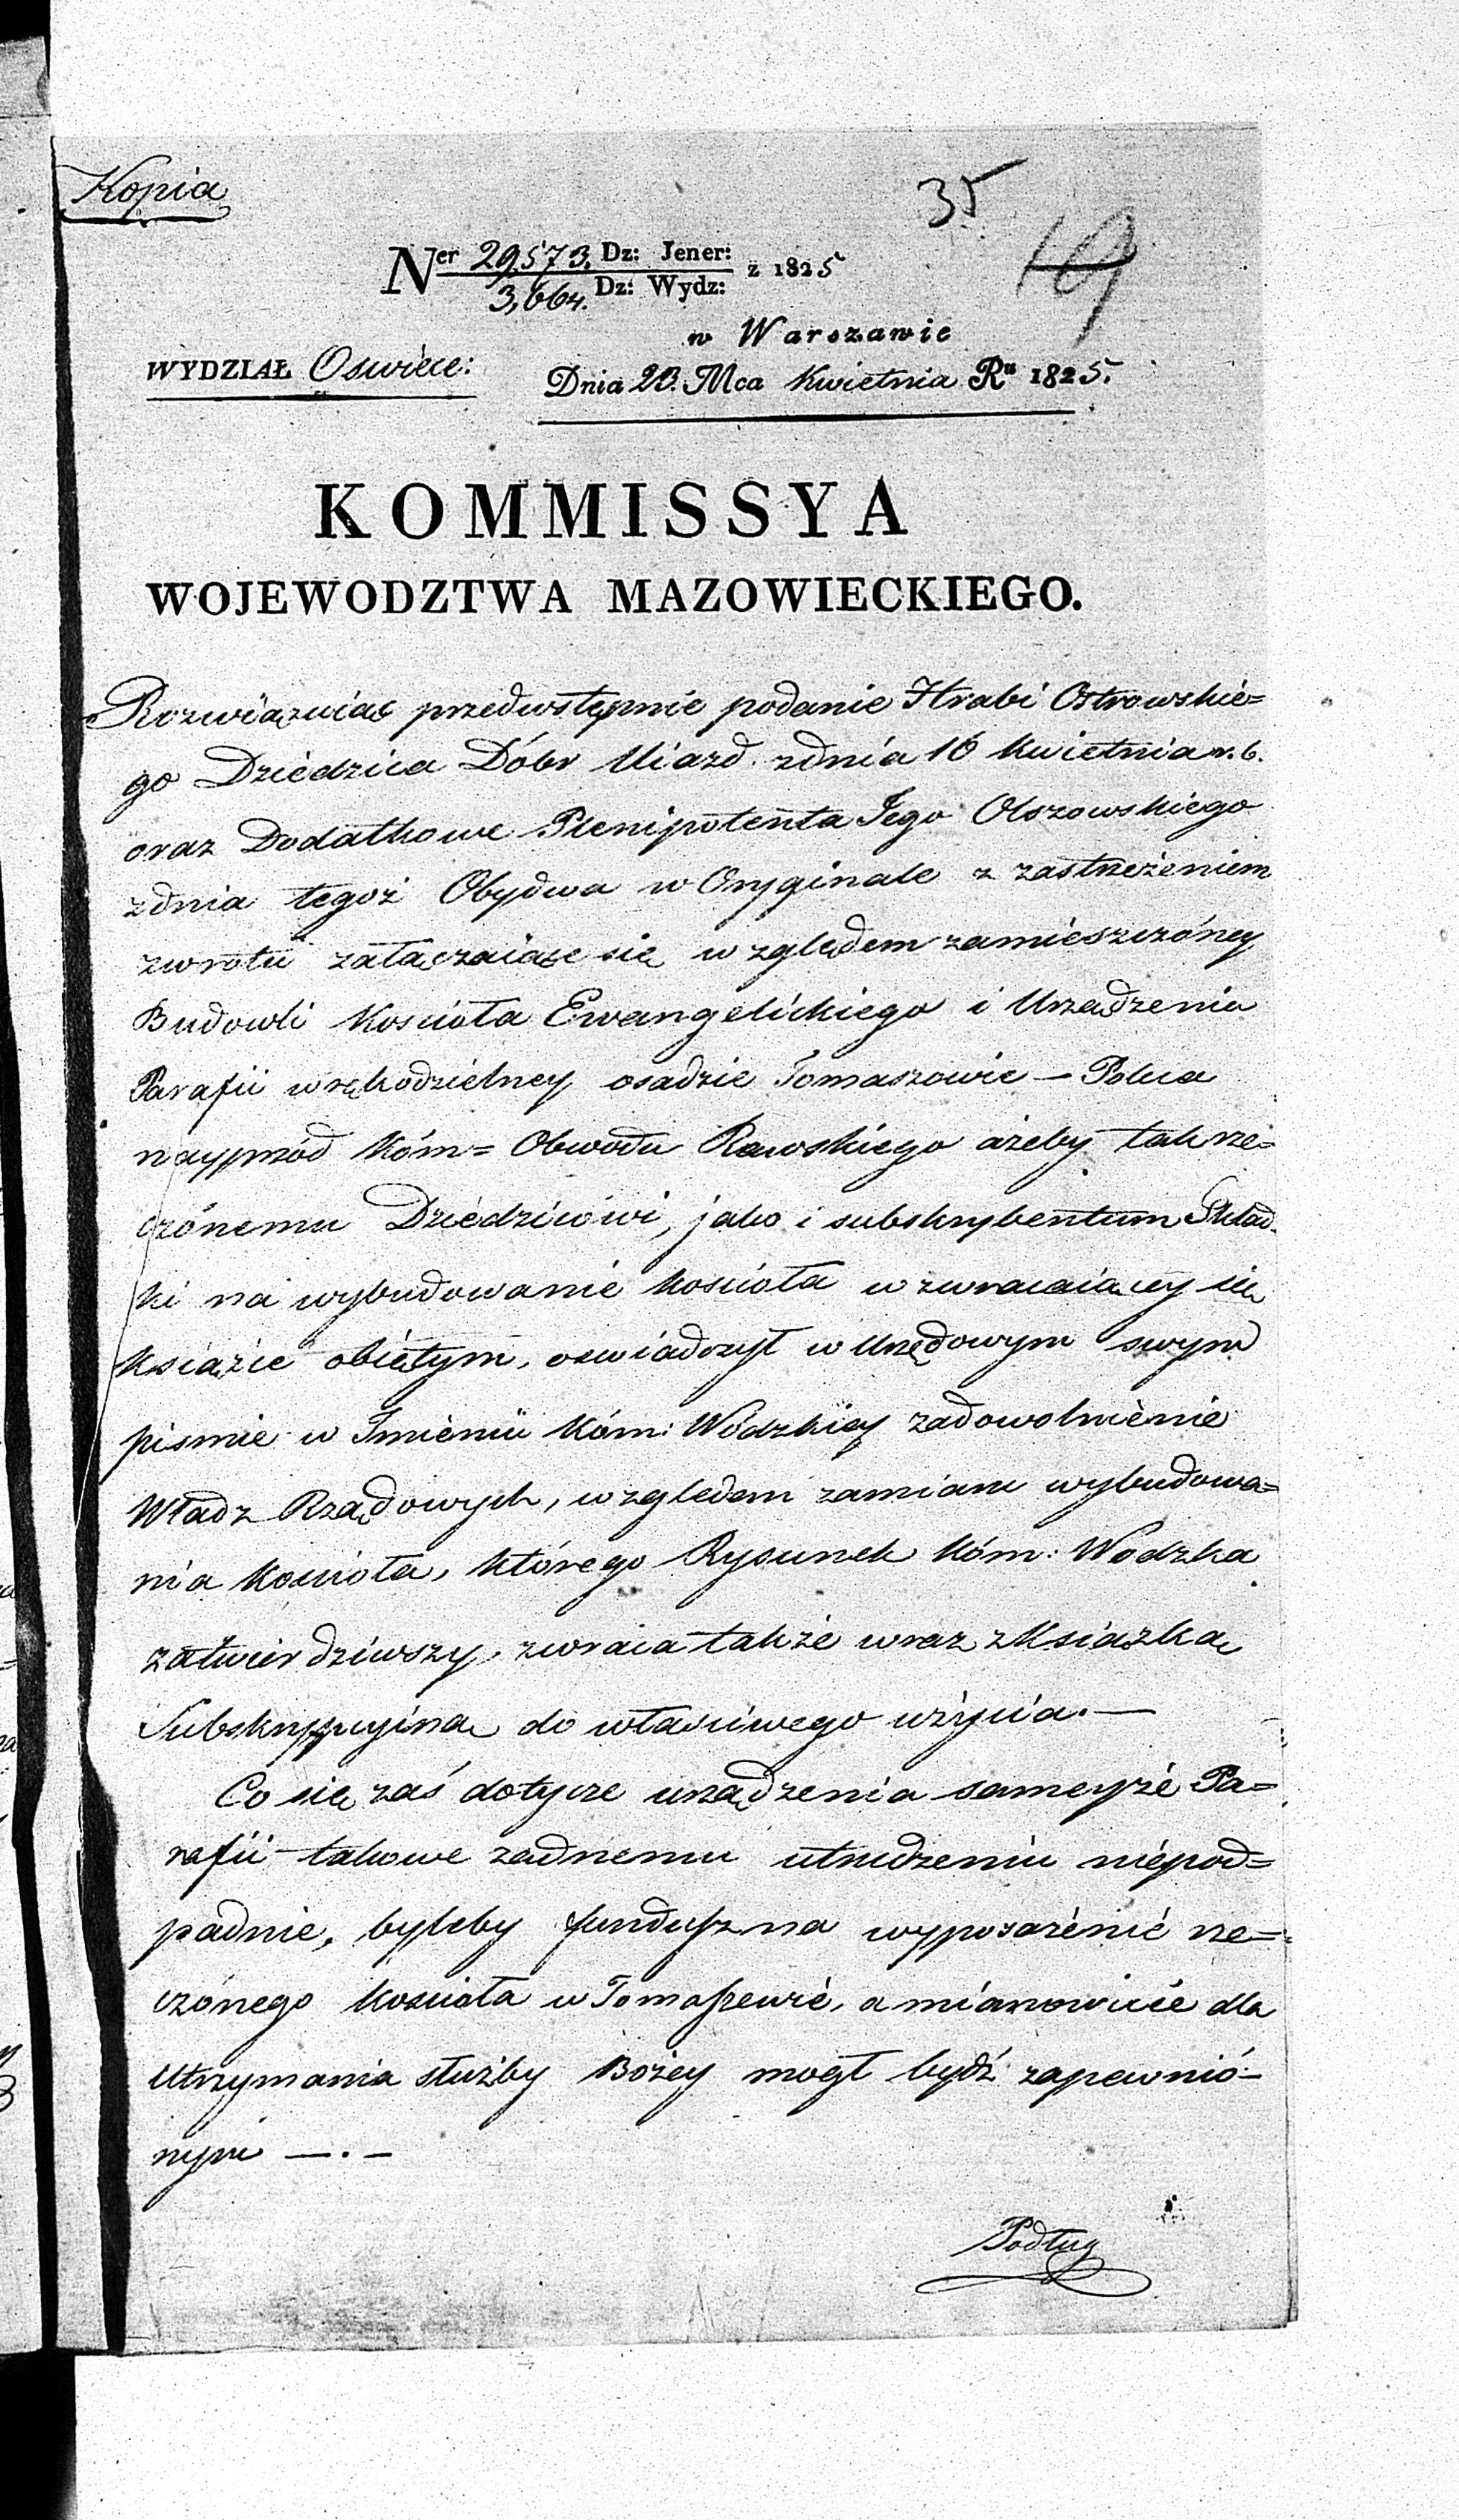 Kopia
35
19
Ner 29,573. Dz: Jener: z 1825
3,664. Dz: Wydz:
w Warszawie
WYDZIAŁ Oswiece:
Dnia 23. Mca Kwietnia Ru 1825.
KOMMISSYA
WOJEWODZTWA MAZOWIECKIEGO.
Rozwiązuiąc przedwstępnie podanie Hrabi Ostrowskie=
go Dziedzica Dóbr Uiazd zdnia 16 Kwietnia r. b.
oraz Dodatkowe Plenipotenta Jego Olszowskiego
zdnia tegoż Obydwa w Oryginale z zastrzeżeniem
zwrotu załączaiące się względem zamieszczóney
Budowli Koscioła Ewangelickiego i Urządzenia
Parafii w rękodzielney osadzie Tomaszowie — Poleca
nayprzód Kóm= Obwodu Rawskiego ażeby tak rze=
czónemu Dziedzicowi, jako i subskrybentum Skład=
ki na wybudowanie koscioła w zwracaiącey się
Ksiązce obiętym, oswiadczył w Urzędowym swym
pismie w Imieniu Kóm: Wódzkiey zadowolnienie
Władz Rządowych, względem zamiaru wybudowa=
nia Koscioła, którego Rysunek Kóm: Wodzka
zatwierdziwszy, zwraca także wraz z Ksiązką
Subskrypcyiną do własciwego użycia. —
Co się zaś dotycze urządzenia sameyże Pa=
rafii takowe żadnemu utrudzeniu niepod=
padnie, byleby fundusz na wyposażenié rze=
czónego Koscioła w Tomaszewie, a mianowicie dla
Utrzymania służby Bożey mogł bydź zapewnió=
nym —.—
Podług